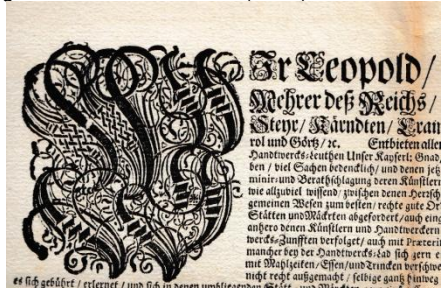 WIr Leopold/
Mehrer deß Reichs/
Steyr/ Kärndten/ Crain
rol und Görtz/ ꝛc. Entbieten allen
Handtwercks-Leuthen Unser Kayserl: Gnad
ben/ viel Sachen bedencklich/ und denen jetz
minir- und Berathschlagung deren Künstler
wie allzuviel wissend/ zwischen denen Herzsch
gemeinen Wesen zum besten/ rechte gute Or
Stätten und Märckten abgefordert/ auch eing
anhero denen Künstlern und Handtwerckern
wercks-Zunfften verfolget/ auch mit Præterit
mancher bey der Handtwercks-Lad sich gern e
mit Mahlzeiten/ Essen/ und Trincken verschwe
nicht recht außgemacht/ selbige gantz hinweg
es sich gebührt/ erlernet/ und sich in denen umbligenden Stätt- und Märckten